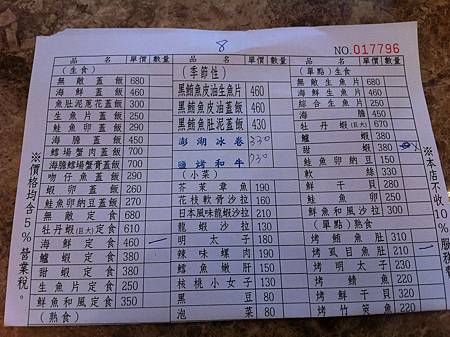 8
NO.017796
品名 單價 數量
(生食)
無敵蓋飯 680
海鮮蓋飯 460
魚肚泥蔥花蓋飯 300
生魚片蓋飯 250
鮭魚卵蓋飯 290
海膽蓋飯 450
鱈場蟹肉蓋飯 360
海膽鱈場蟹膏蓋飯 360
吻仔魚蓋飯 250
蝦卵蓋飯 260
鮭魚卵納豆蓋飯 260
無敵定食 680
牡丹蝦(巨大)定食 610
海鮮定食 460 一
鱸蝦定食 390
甜蝦定食 360
生魚片定食 250
鮮魚和風定食 350
(熟食)
品名 單價 數量
(季節性)
黑鮪魚皮油生魚片 460
黑鮪魚皮油蓋飯 460
黑鮪魚肚泥蓋飯 430
澎湖冰卷 330
鹽烤和牛 730
(小菜)
芥茉章魚 190
花枝軟骨沙拉 160
日本風味龍蝦沙拉 210
龍蝦沙拉 130
明太子 180
辣味螺肉 190
鱈魚嫩肝 150
核桃小女子 130
黑豆 80
泡菜 80
品名 單價 數量
(單點)生食
無敵生魚片 680
海鮮生魚片 460
綜合生魚片 250
海膽 450
牡丹蝦(巨大) 670
鱸蝦 380
甜蝦 380
鮭魚卵納豆 150
軟絲 150
鮮干貝 280
蝦卵 250
鮮魚和風沙拉 300
(單點)熟食
烤鮪魚肚 310
烤虱目魚肚 210 一
烤明太子 230
烤鯖魚 220
烤鮮干貝 320
烤竹筴魚 220
※價格均含5%營業稅。
※本店不收10%服務